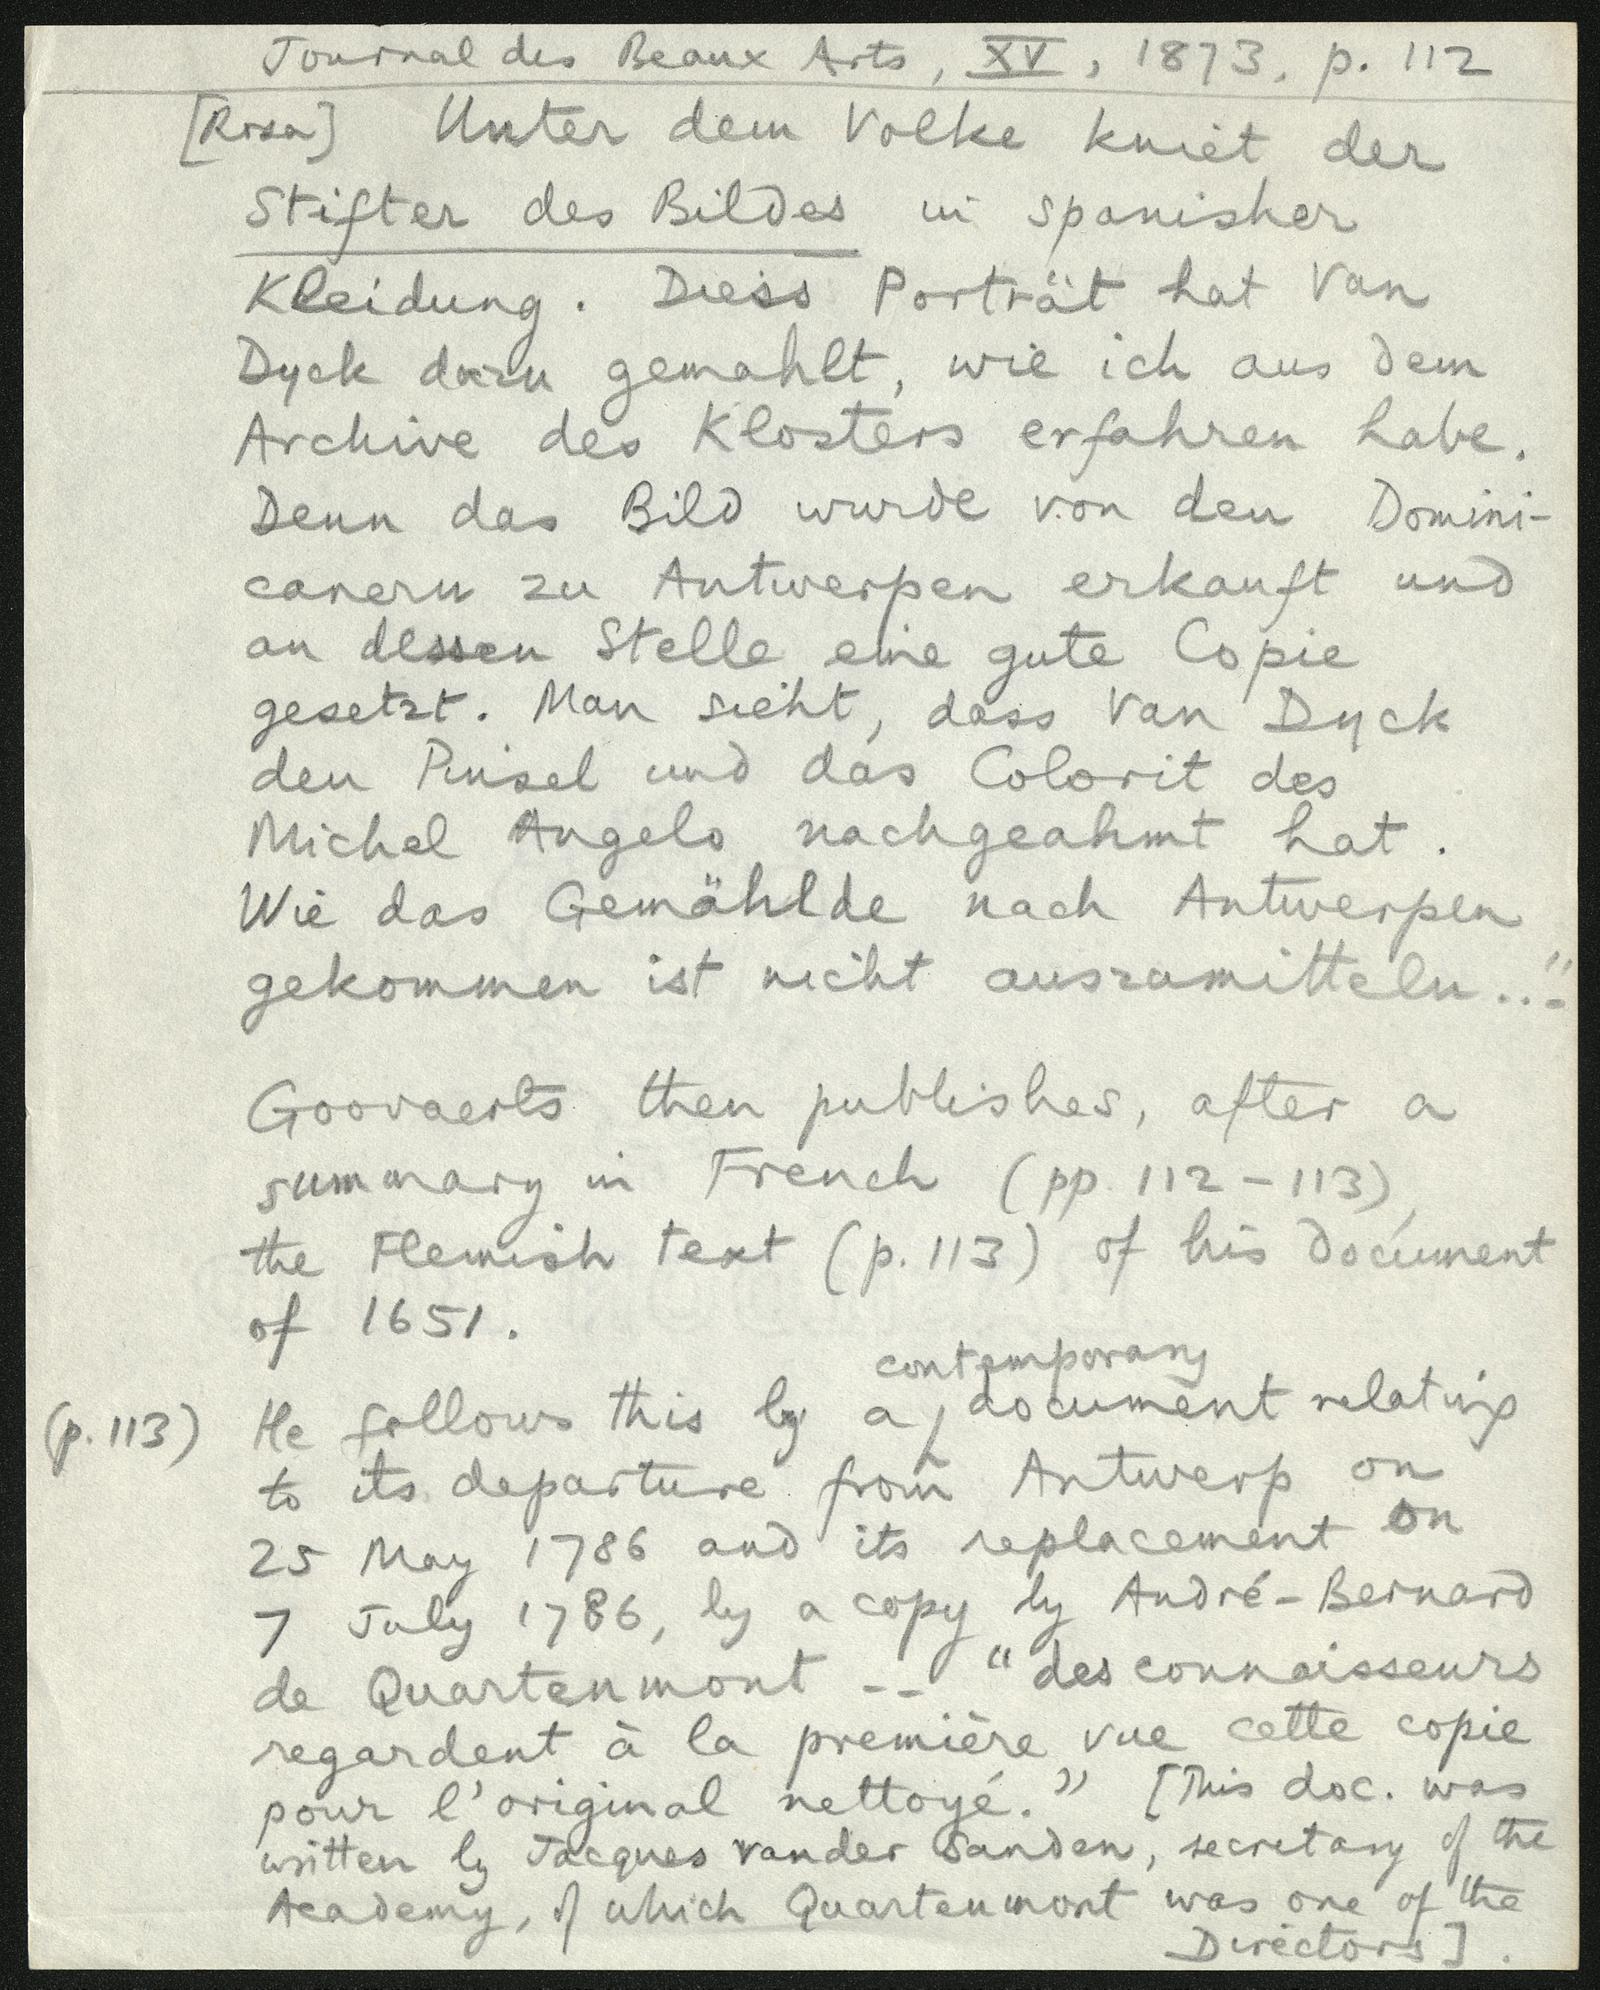 Journal des Beaux Arts, XV, 1873, p. 112
[Rosa] Unter dem Volke kniet der
Stifter des Bildes in spanisher
Kleidung. Diess Porträt hat Van
Dyck dazu gemahlt, wie ich aus dem
Archive des Klosters erfahren habe.
Denn das Bild wurde von den Domini-
canern zu Antwerpen erkauft und
an dessen Stelle eine gute Copie
gesetzt. Man sieht, dass Van Dyck
den Pinsel und das Colorit des
Michel Angelo nachgeahmt hat.
Wie das Gemählde nach Antwerpen
gekommen ist nicht auszumitteln..."
Goovaerts then publishes, after a
summary in French (pp. 112-113),
the Flemish text (p. 113) of his document
of 1651.
contemporary
(p. 113) He follows this by a document relating
to its departure from Antwerp on
25 May 1786 and its replacement on
7 July 1786, by a copy by André-Bernard
de Quartenmont -- "des connaisseurs
regardent à la première vue cette copie
pour l'original nettoyé." [This doc. was
written by Jacques vander Sanden, secretary of the
Academy, of which Quartenmont was one of the
Directors].